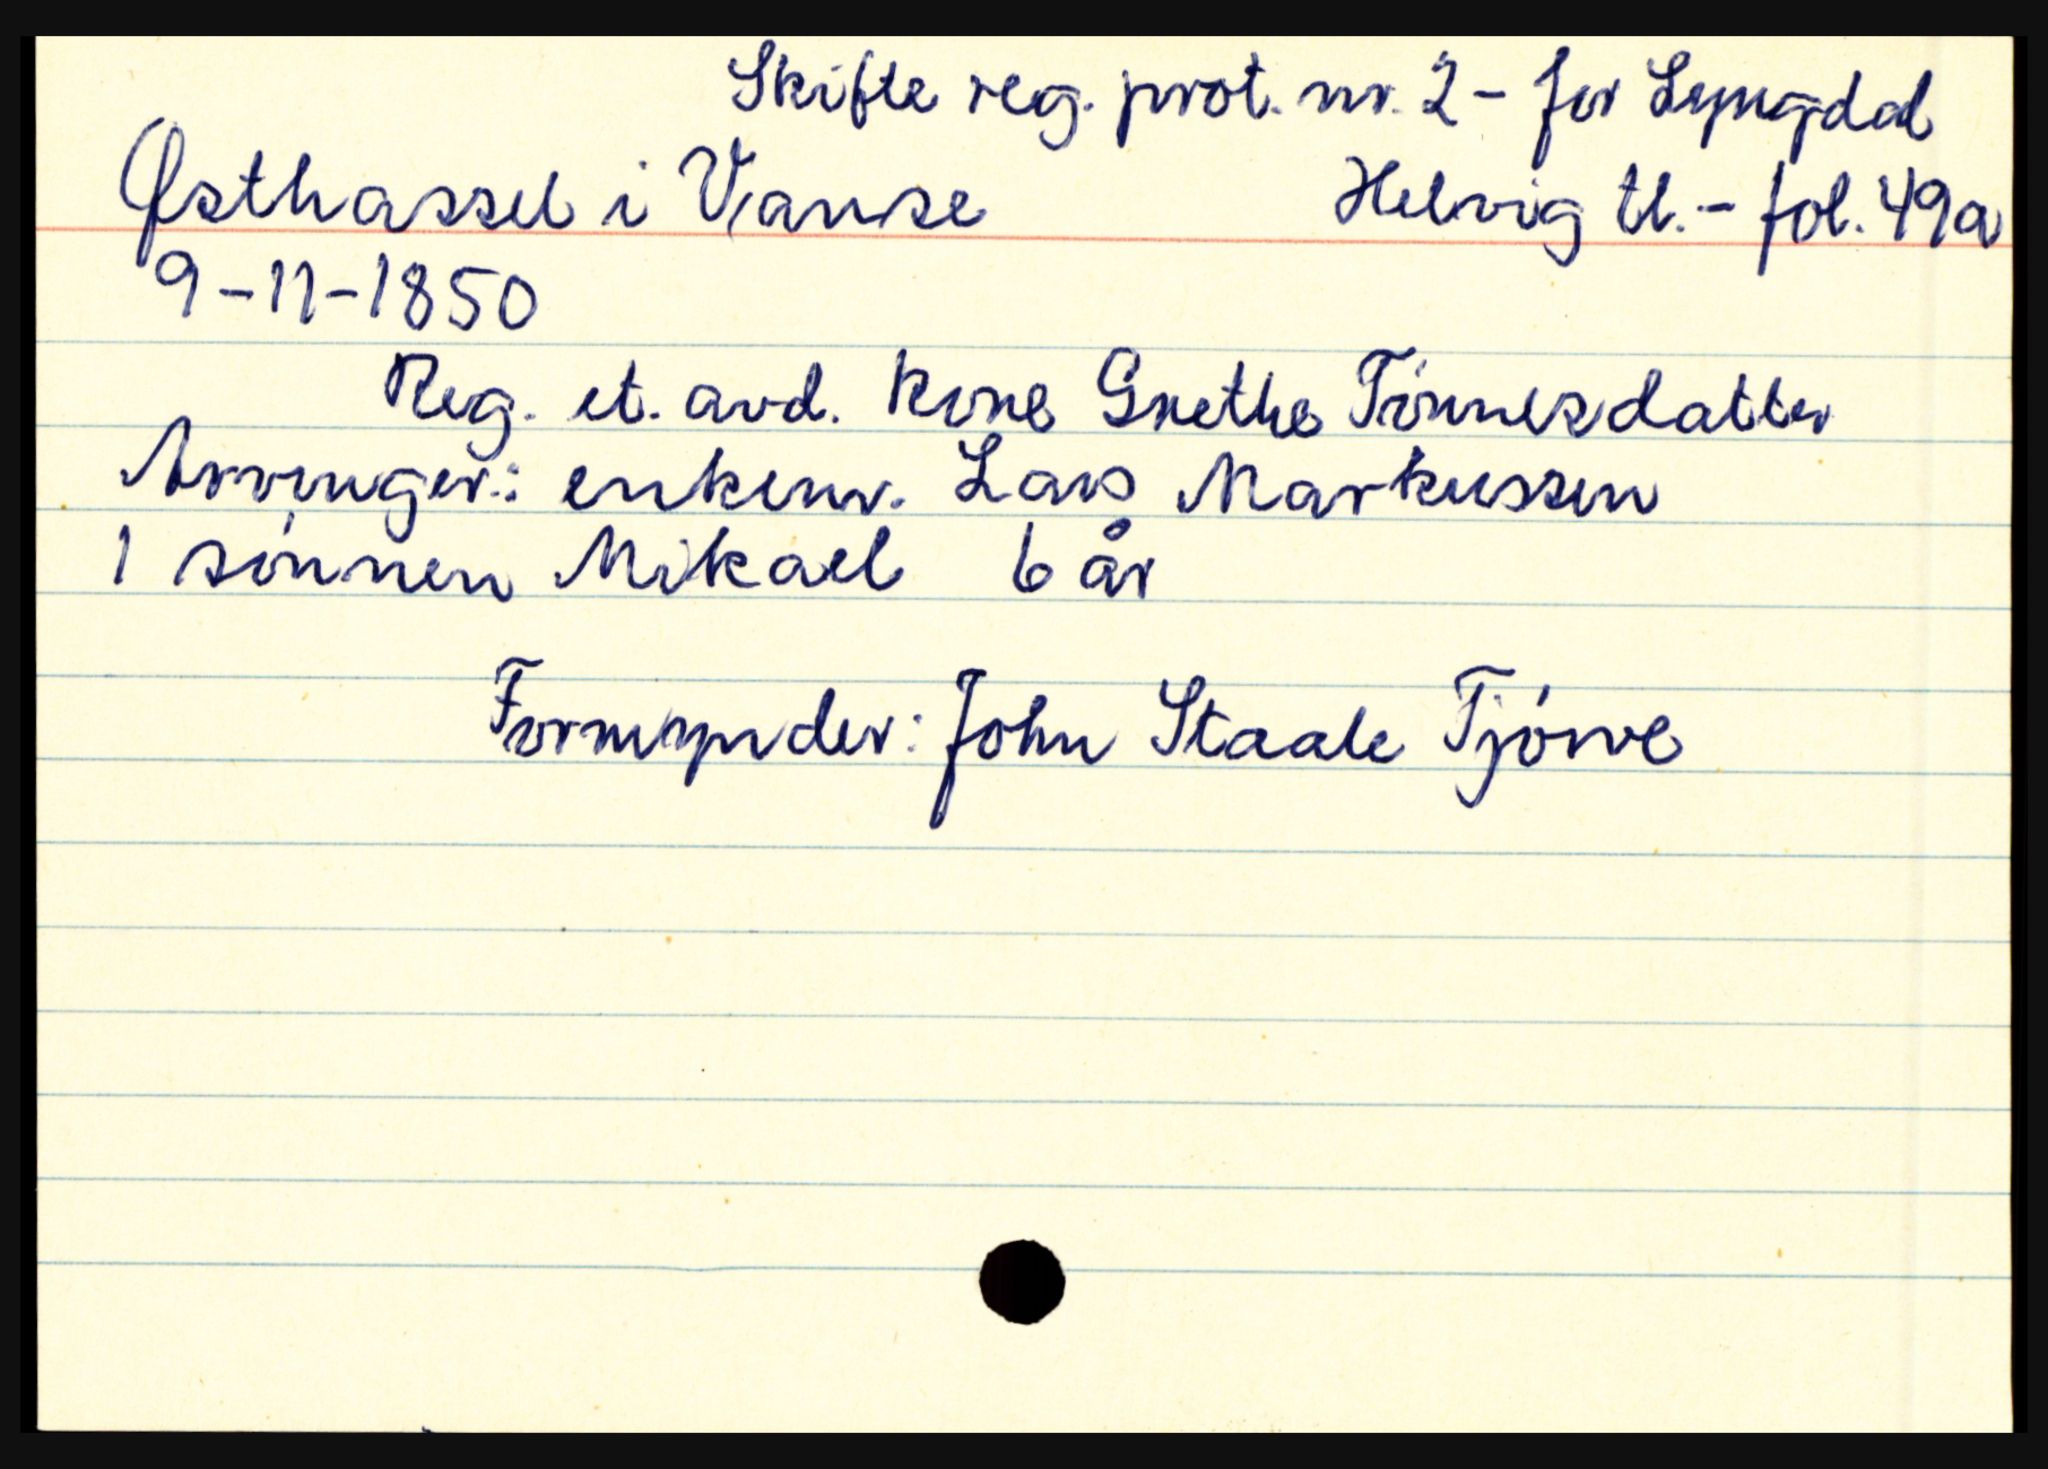 Skifte reg. prot. nr. 2 - for Lyngdal
Østhassel i Vanse Helvig tl. - fol. 49a
9-11-1850
Reg. et. avd. kone Grethe Tónnesdatter
Arvinger: enkem. Lars Markussen
1 sónnen Mikael 6 år
Formynder: John Staale Tjórve